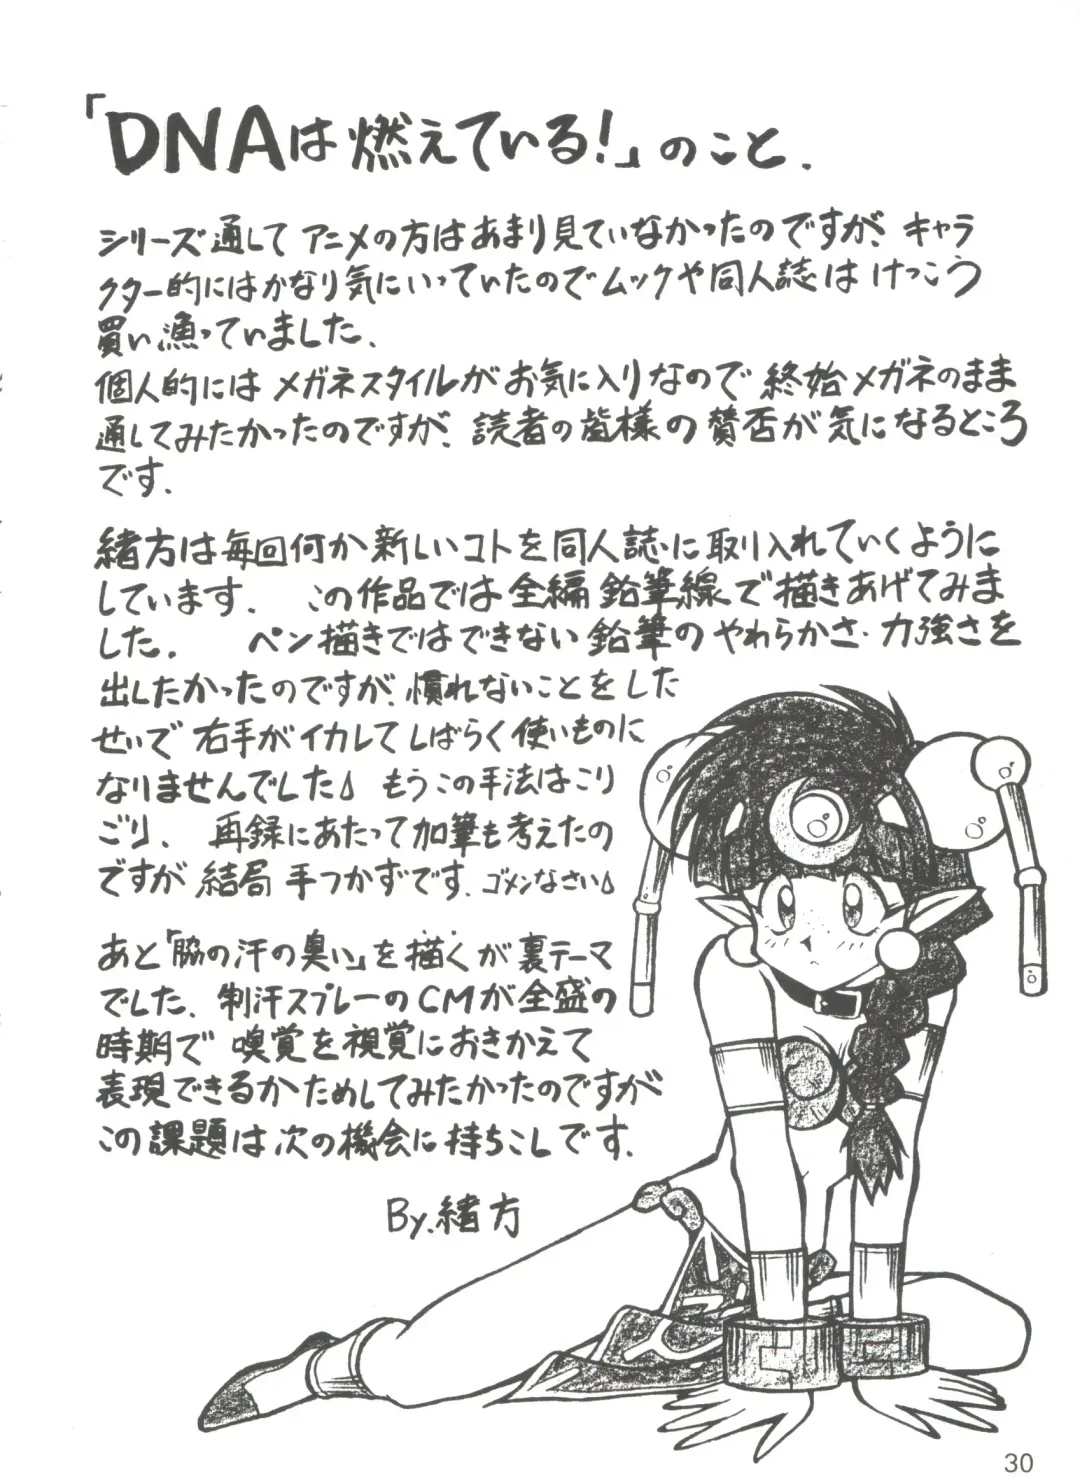 「DNAは燃えている！」のこと.
シリーズ通して アニメの方はあまり見ていなかったのですが、キャラ
クター的にはかなり気にいっていたのでムックや同人誌は けっこう
買い漁っていました.
個人的には メガネスタイルが お気に入りなので 終始メガネのまま
通してみたかったのですが、読者の皆様の賛否が気になるところ
です.
緒方は毎回何か新しいコトを同人誌に取り入れていくように
しています. この作品では全編鉛筆線で描きあげてみま
した. ペン描きではできない鉛筆のやわらかさ・力強さを
出したかったのですが、慣れないことをした
せいで 右手がイカレてしばらく使いものに
なりませんでした もうこの手法はこり
ごり. 再録にあたって加筆も考えたの
ですが 結局 手つかずです. ゴメンなさい
あと「脇の汗の臭い」を描くが裏テーマ
でした. 制汗スプレーのCMが全盛の
時期で 嗅覚を視覚におきかえて
表現できるかためしてみたかったのですが
この課題は次の機会に持ちこしです.
By.緒方
30